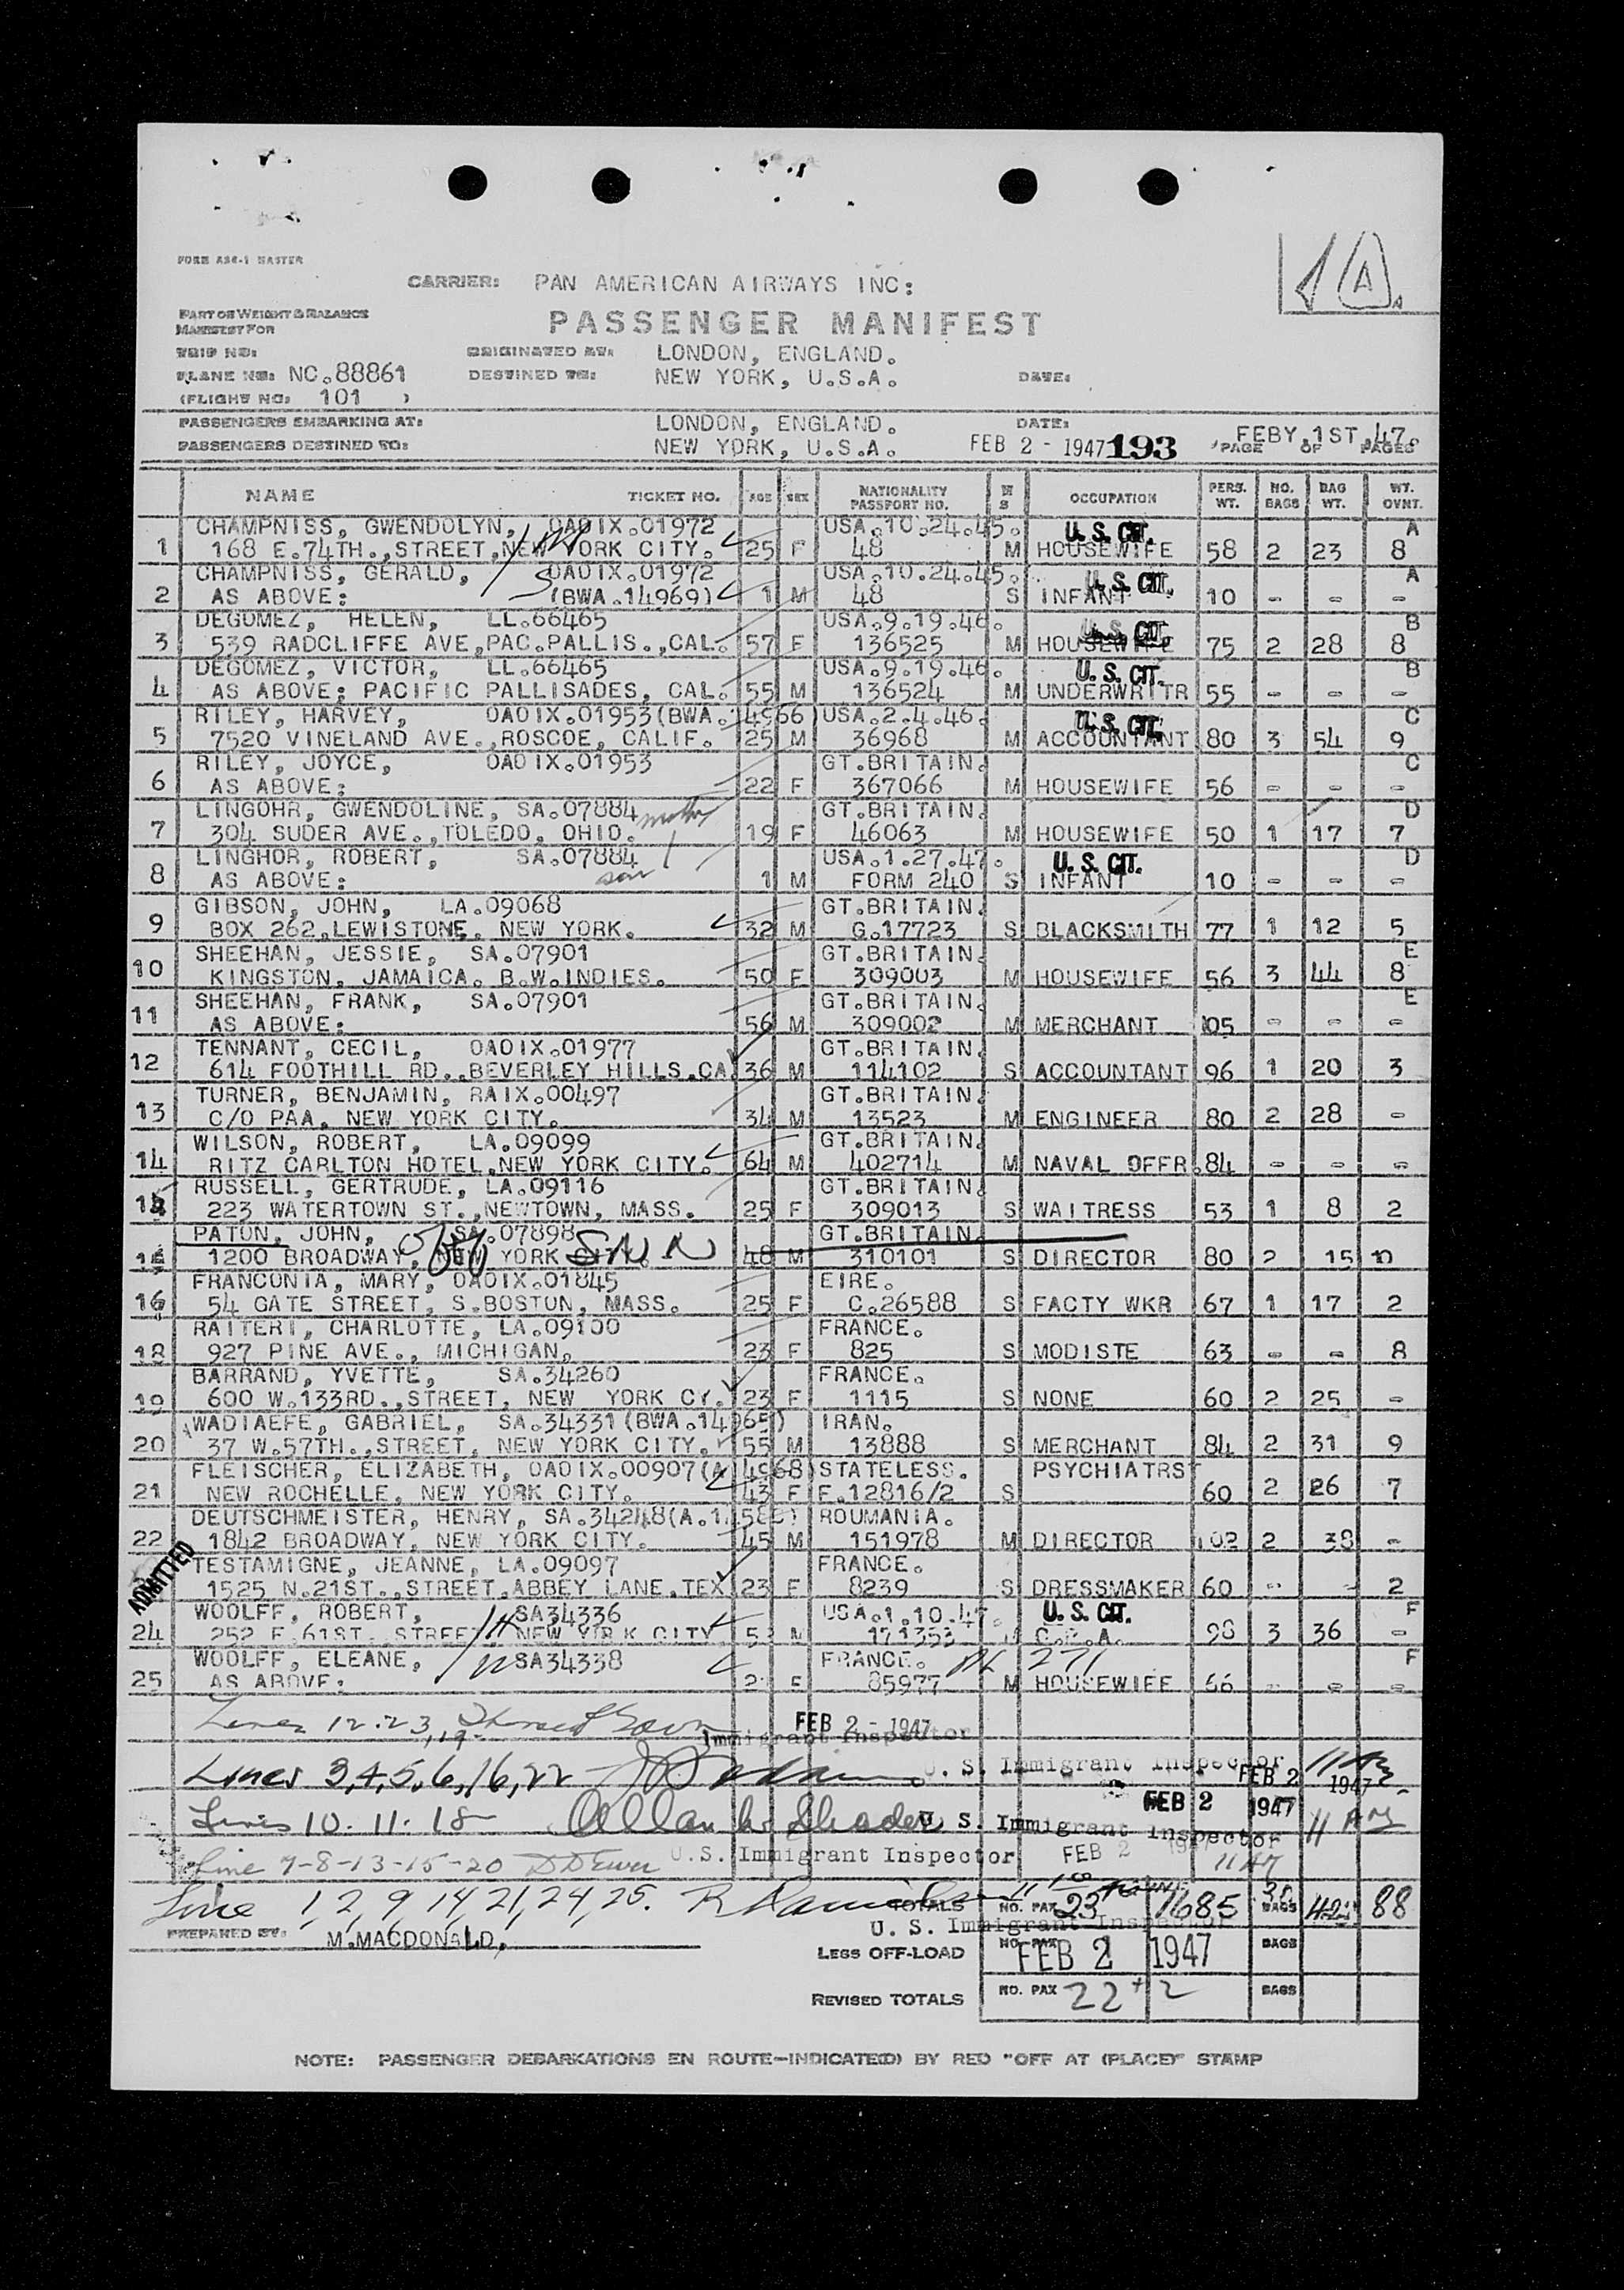 FORM ASC-1 MASTER
CARRIER: PAN AMERICAN AIRWAYS INC:
A
PART OF WEIGHT & BALANCE
MANIFEST FOR
PASSENGER MANIFEST
TRIP NO:
ORIGINATED AT: LONDON, ENGLAND.
PLANE NO: NC.88861
DESTINED TO: NEW YORK, U.S.A. DATE:
(FLIGHT NO: 101 )
PASSENGERS EMBARKING AT: LONDON, ENGLAND. DATE: FEBY.1ST.47.
PASSENGERS DESTINED TO: NEW YORK, U.S.A. FEB 2 - 1947 193 PAGE OF PAGES
NAME TICKET NO. AGE SEX NATIONALITY PASSPORT NO. M S OCCUPATION PERS. WT. NO. BAGS BAG WT. WT. OVNT.
CHAMPNISS, GWENDOLYN, OAOIX.01972 USA.10.24.45. U. S. CIT. A
1 168 E.74TH.,STREET,NEW YORK CITY. 25 F 48 M HOUSEWIFE 58 2 23 8
CHAMPNISS, GERALD, OAOIX.01972 USA.10.24.45. U. S. CIT. A
2 AS ABOVE: (BWA.14969) 1 M 48 S INFANT 10 - - -
DEGOMEZ, HELEN, LL.66465 USA.9.19.46. U. S. CIT. B
3 539 RADCLIFFE AVE,PAC.PALLIS.,CAL. 57 F 136525 M HOUSEWIFE 75 2 28 8
DEGOMEZ, VICTOR, LL.66465 USA.9.19.46. U. S. CIT. B
4 AS ABOVE: PACIFIC PALLISADES, CAL. 55 M 136524 M UNDERWRITR 55 - - -
RILEY, HARVEY, OAOIX.01953(BWA.14966)USA.2.4.46. U. S. CIT. C
5 7520 VINELAND AVE.,ROSCOE, CALIF. 25 M 36968 M ACCOUNTANT 80 3 54 9
RILEY, JOYCE, OAOIX.01953 GT.BRITAIN. C
6 AS ABOVE: 22 F 367066 M HOUSEWIFE 56 - - -
LINGOHR, GWENDOLINE, SA.07884 mother GT.BRITAIN. D
7 304 SUDER AVE.,TOLEDO, OHIO. 19 F 46063 M HOUSEWIFE 50 1 17 7
LINGHOR, ROBERT, SA.07884 USA.1.27.47. U. S. CIT. D
8 AS ABOVE: son 1 M FORM 240 S INFANT 10 - - -
GIBSON, JOHN, LA.09068 GT.BRITAIN.
9 BOX 262,LEWISTONE, NEW YORK. 32 M G.17723 S BLACKSMITH 77 1 12 5
SHEEHAN, JESSIE, SA.07901 GT.BRITAIN. E
10 KINGSTON, JAMAICA. B.W.INDIES. 50 F 309003 M HOUSEWIFE 56 3 44 8
SHEEHAN, FRANK, SA.07901 GT.BRITAIN. E
11 AS ABOVE: 56 M 309002 M MERCHANT 105 - - -
TENNANT, CECIL, OAOIX.01977 GT.BRITAIN.
12 614 FOOTHILL RD.,BEVERLEY HILLS.CA. 36 M 114102 S ACCOUNTANT 96 1 20 3
TURNER, BENJAMIN, RAIX.00497 GT.BRITAIN.
13 C/O PAA. NEW YORK CITY. 34 M 13523 M ENGINEER 80 2 28 -
WILSON, ROBERT, LA.09099 GT.BRITAIN.
14 RITZ CARLTON HOTEL,NEW YORK CITY. 64 M 402714 M NAVAL OFFR. 84 - - -
RUSSELL, GERTRUDE, LA.09116 GT.BRITAIN.
15 223 WATERTOWN ST.,NEWTOWN, MASS. 25 F 309013 S WAITRESS 53 1 8 2
PATON, JOHN, SA.07898 GT.BRITAIN.
1200 BROADWAY, NEW YORK 48 M 310101 S DIRECTOR 80 2 15 10
FRANCONIA, MARY, OAOIX.01845 EIRE.
16 54 GATE STREET, S.BOSTON, MASS. 25 F C.26588 S FACTY WKR 67 1 17 2
RAITERI, CHARLOTTE, LA.09100 FRANCE.
18 927 PINE AVE., MICHIGAN, 23 F 825 S MODISTE 63 - - 8
BARRAND, YVETTE, SA.34260 FRANCE.
19 600 W.133RD.,STREET, NEW YORK CY. 23 F 1115 S NONE 60 2 25 -
WADIAEFE, GABRIEL, SA.34331(BWA.14965) IRAN.
20 37 W.57TH.,STREET, NEW YORK CITY. 55 M 13888 S MERCHANT 84 2 31 9
FLEISCHER, ELIZABETH, OAOIX.00907(A.14968)STATELESS. PSYCHIATRST
21 NEW ROCHELLE, NEW YORK CITY. 43 F F.12816/2 S 60 2 26 7
DEUTSCHMEISTER, HENRY, SA.34248 ROUMANIA.
22 1842 BROADWAY, NEW YORK CITY. 45 M 151978 M DIRECTOR 102 2 38 -
ADMITTED TESTAMIGNE, JEANNE, LA.09097 FRANCE.
1525 N.21ST.,STREET,ABBEY LANE.TEX 23 F 8239 S DRESSMAKER 60 - - 2
WOOLFF, ROBERT, SA34336 USA.1.10.47. U. S. CIT. F
24 252 E.61ST. STREET, NEW YORK CITY M 171353 C.P.A. 98 3 36 -
WOOLFF, ELEANE, SA34338 FRANCE. 271 F
25 AS ABOVE: F 85977 M HOUSEWIFE 66 - - -
Lines 12.23, 19 FEB 2 - 1947 Immigrant Inspector
Lines 3,4,5,6,16,22 U. S. Immigrant Inspector FEB 2 1947
Lines 10. 11. 18 U. S. Immigrant Inspector FEB 2 1947 11 AM
Line 7-8-13-15-20 U.S. Immigrant Inspector FEB 2
Line 1, 2, 9, 14, 21, 24, 25. TOTALS NO. PAX 23 1685 BAGS 88
U. S. Immigrant Inspector
PREPARED BY: M.MACDONALD,
LESS OFF-LOAD NO. PAX FEB 2 1947 BAGS
REVISED TOTALS NO. PAX 22 + 2 BAGS
NOTE: PASSENGER DEBARKATIONS EN ROUTE—INDICATE(D) BY RED "OFF AT (PLACE)" STAMP